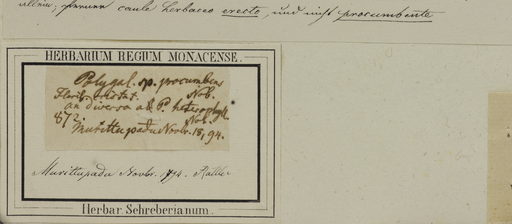 caule herbaceo erecto, und nicht procumbente
HERBARIUM REGIUM MONACENSE.
Polygal. sp. procumbens
Florib. cristat. Nob.
an diversa a P. heterophyll.
Nob.
872.
Murittupadu Novbr. 18, 94.
Murittupadu Novbr. 1794. Rottler
Herbar. Schreberianum.